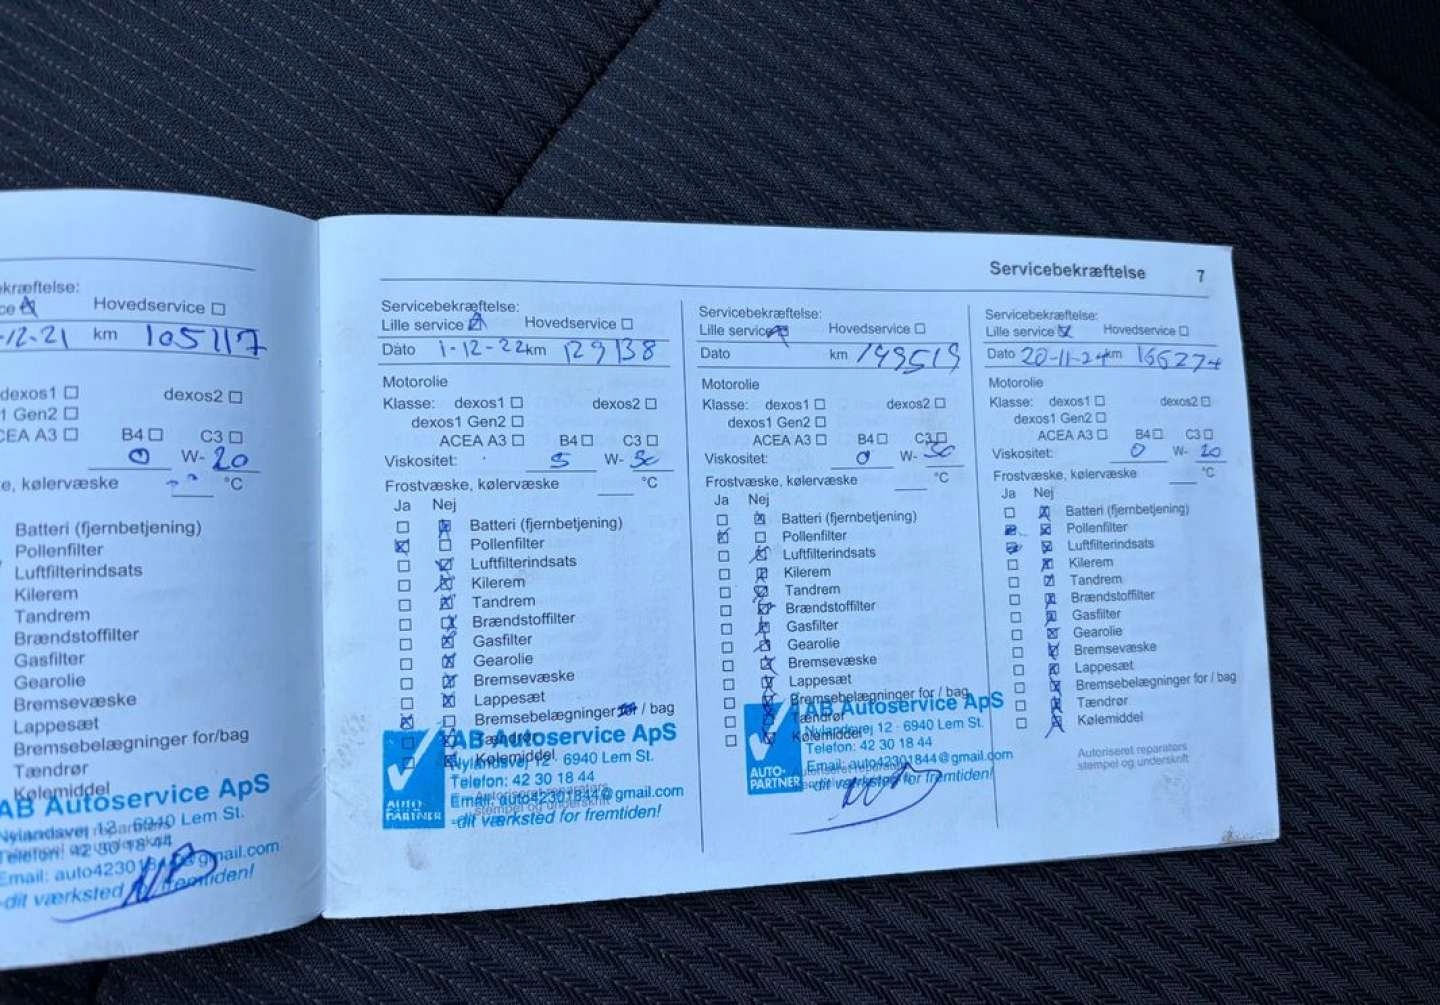 Servicebekræftelse 7
ekræftelse:
ce Hovedservice
-12-21 km 105117
dexos1 dexos2
s1 Gen2
CEA A3 B4 C3
0 W- 20
e, kølervæske °C
Batteri (fjernbetjening)
Pollenfilter
Luftfilterindsats
Kilerem
Tandrem
Brændstoffilter
Gasfilter
Gearolie
Bremsevæske
Lappesæt
Bremsebelægninger for/bag
Tændrør
Kølemiddel
AB Autoservice ApS
Nylandsvej 12 · 6940 Lem St.
Telefon: 42 30 18 44
Email: auto42301844@gmail.com
-dit værksted for fremtiden!
Servicebekræftelse:
Lille service Hovedservice
Dato 1-12-22 km 129138
Motorolie
Klasse: dexos1 dexos2
dexos1 Gen2
ACEA A3 B4 C3
Viskositet: 5 W- 30
Frostvæske, kølervæske °C
Ja Nej
Batteri (fjernbetjening)
Pollenfilter
Luftfilterindsats
Kilerem
Tandrem
Brændstoffilter
Gasfilter
Gearolie
Bremsevæske
Lappesæt
Bremsebelægninger for / bag
Tændrør
Kølemiddel
AUTO-
PARTNER
AB Autoservice ApS
Nylandsvej 12 · 6940 Lem St.
Telefon: 42 30 18 44
Email: auto42301844@gmail.com
Autoriseret reparatørs
stempel og underskrift
-dit værksted for fremtiden!
Servicebekræftelse:
Lille service Hovedservice
Dato km 149519
Motorolie
Klasse: dexos1 dexos2
dexos1 Gen2
ACEA A3 B4 C3
Viskositet: 0 W- 30
Frostvæske, kølervæske °C
Ja Nej
Batteri (fjernbetjening)
Pollenfilter
Luftfilterindsats
Kilerem
Tandrem
Brændstoffilter
Gasfilter
Gearolie
Bremsevæske
Lappesæt
Bremsebelægninger for / bag
Tændrør
Kølemiddel
AUTO-
PARTNER
AB Autoservice ApS
Nylandsvej 12 · 6940 Lem St.
Telefon: 42 30 18 44
Email: auto42301844@gmail.com
-dit værksted for fremtiden!
Servicebekræftelse:
Lille service Hovedservice
Dato 20-11-24 km 166274
Motorolie
Klasse: dexos1 dexos2
dexos1 Gen2
ACEA A3 B4 C3
Viskositet: 0 W- 20
Frostvæske, kølervæske °C
Ja Nej
Batteri (fjernbetjening)
Pollenfilter
Luftfilterindsats
Kilerem
Tandrem
Brændstoffilter
Gasfilter
Gearolie
Bremsevæske
Lappesæt
Bremsebelægninger for / bag
Tændrør
Kølemiddel
Autoriseret reparatørs
stempel og underskrift